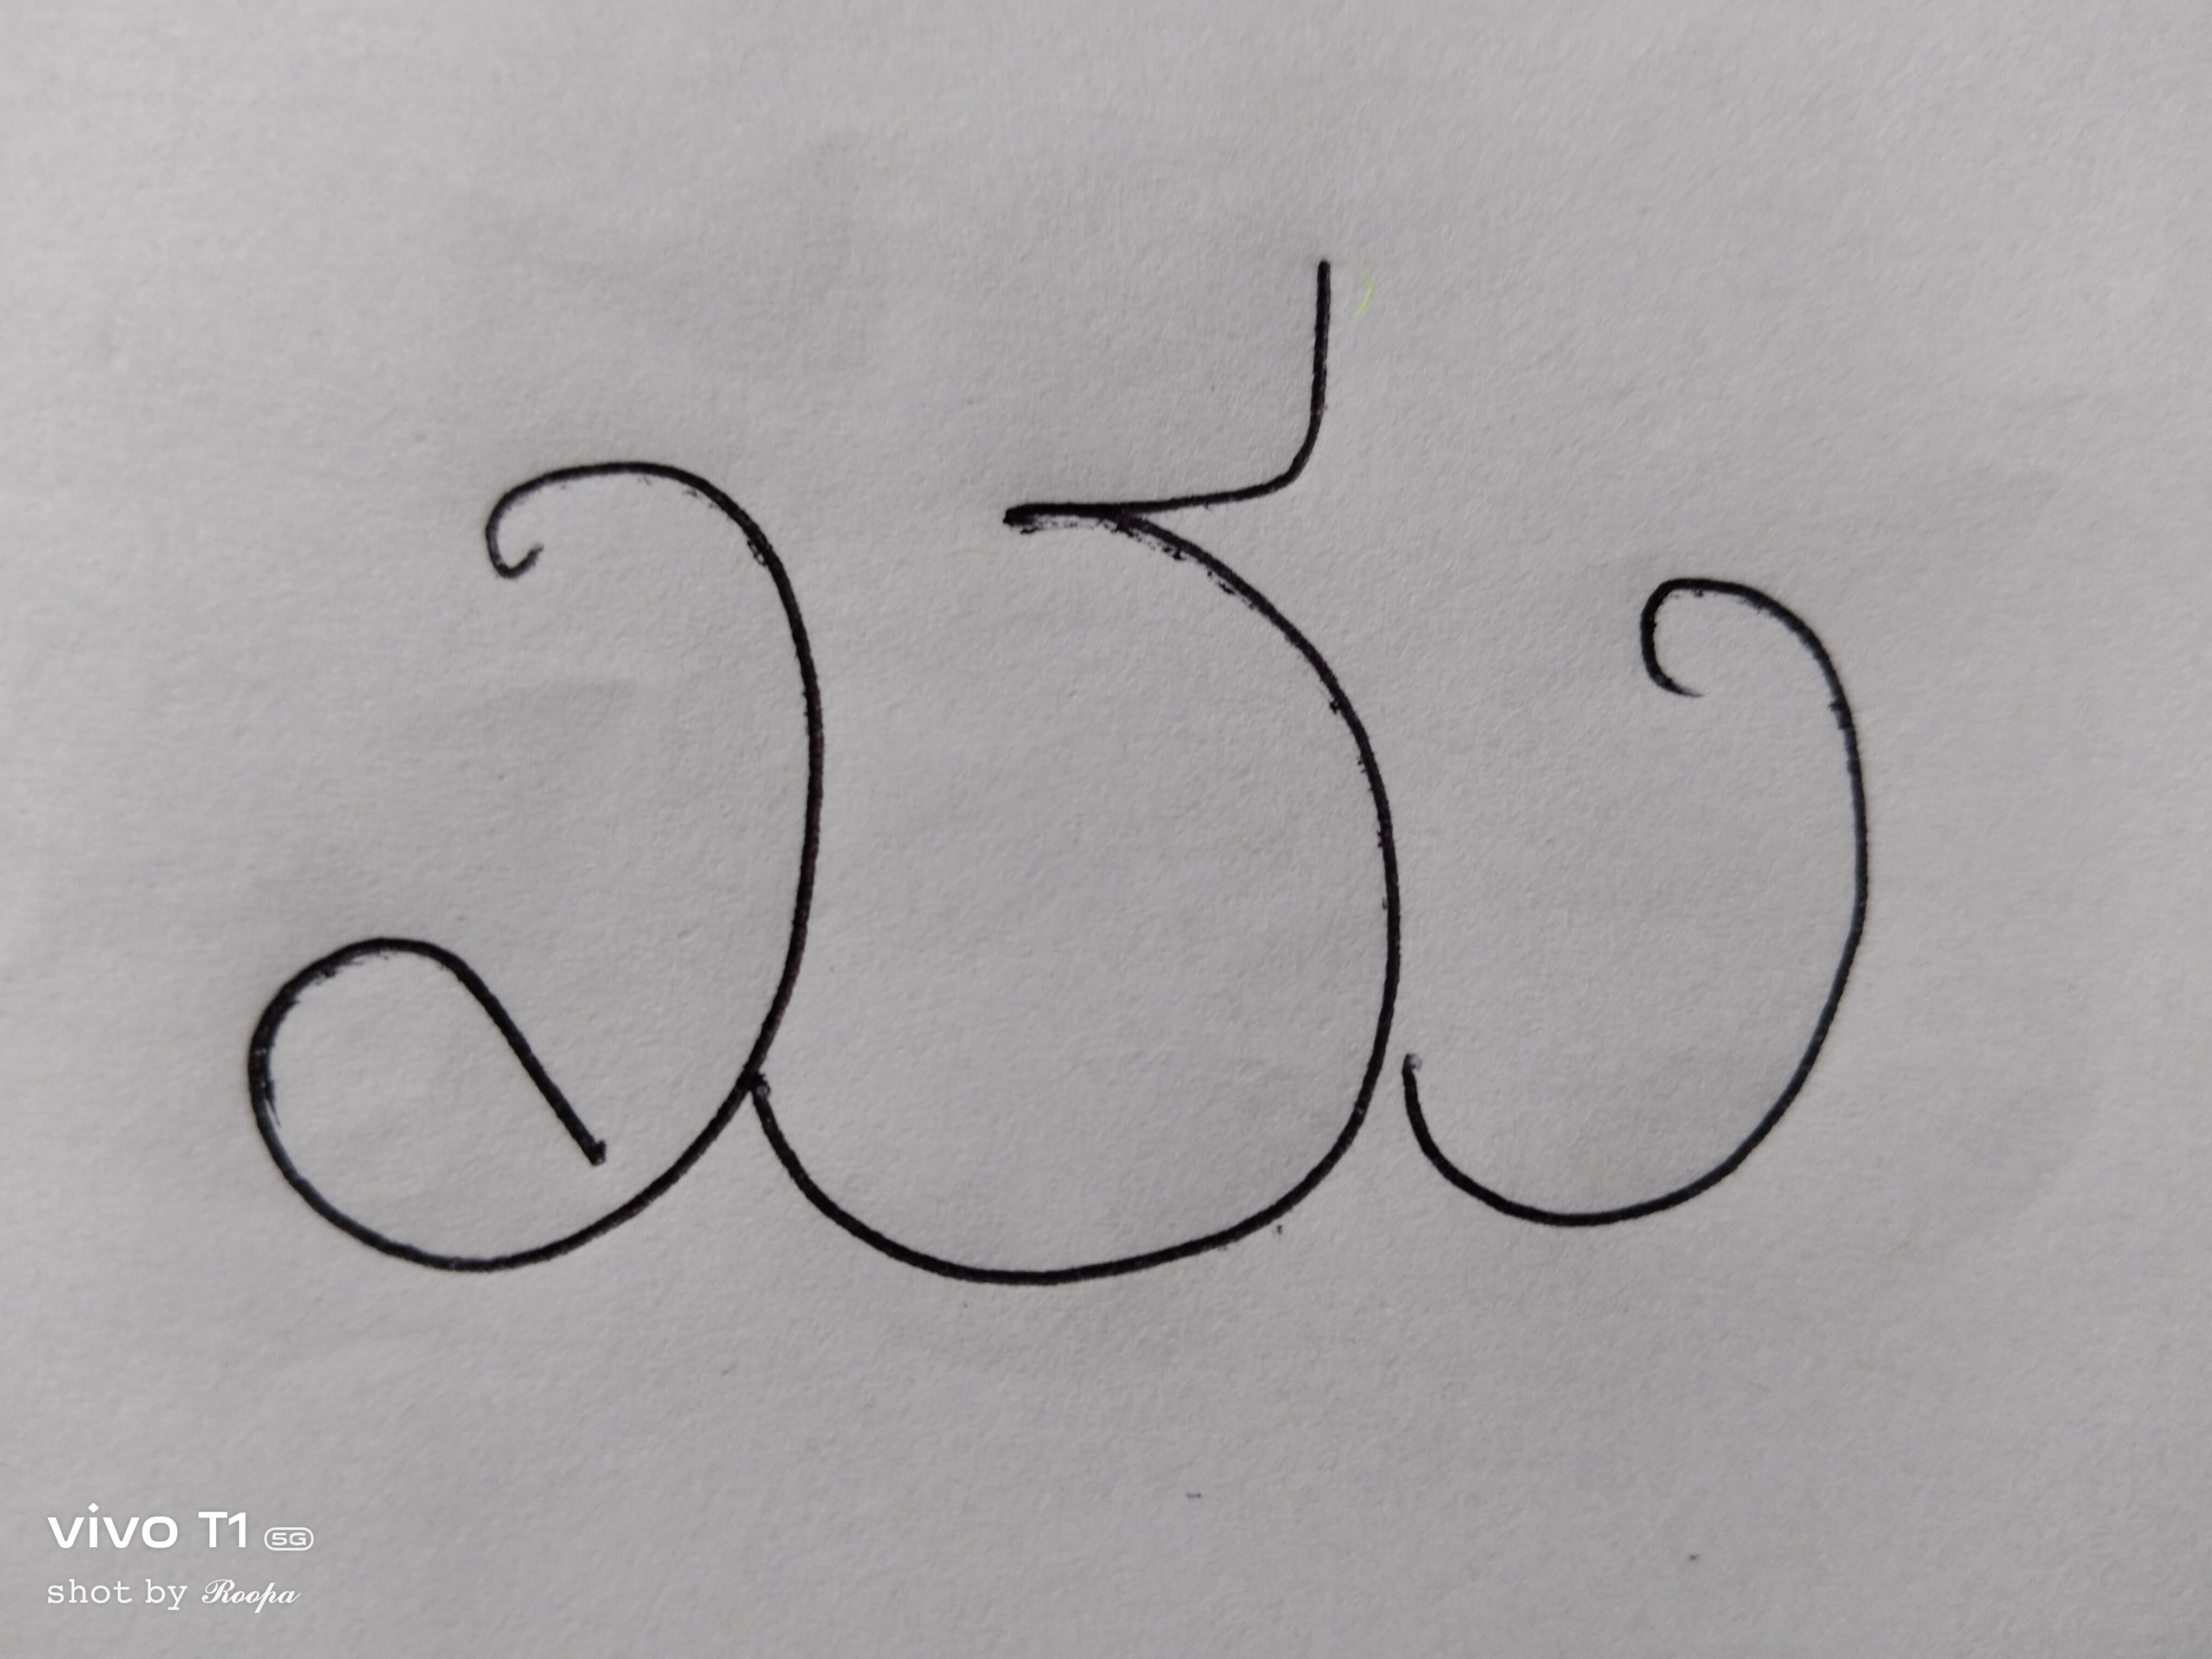 ಯ
vivo T1 5G
shot by Roopa